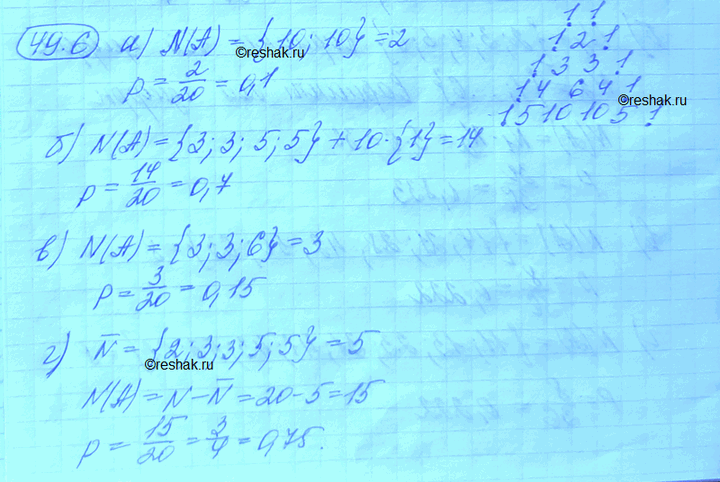 49.6 а) N(A) = {10; 10} = 2
p = 2/20 = 0,1
1 1
1 2 1
1 3 3 1
1 4 6 4 1
1 5 10 10 5 1
б) N(A) = {3; 3; 5; 5} + 10·{1} = 14
p = 14/20 = 0,7
в) N(A) = {3; 3; 6} = 3
p = 3/20 = 0,15
г) N̄ = {2; 3; 3; 5; 5} = 5
N(A) = N - N̄ = 20 - 5 = 15
p = 15/20 = 3/4 = 0,75.
©reshak.ru
©reshak.ru
©reshak.ru